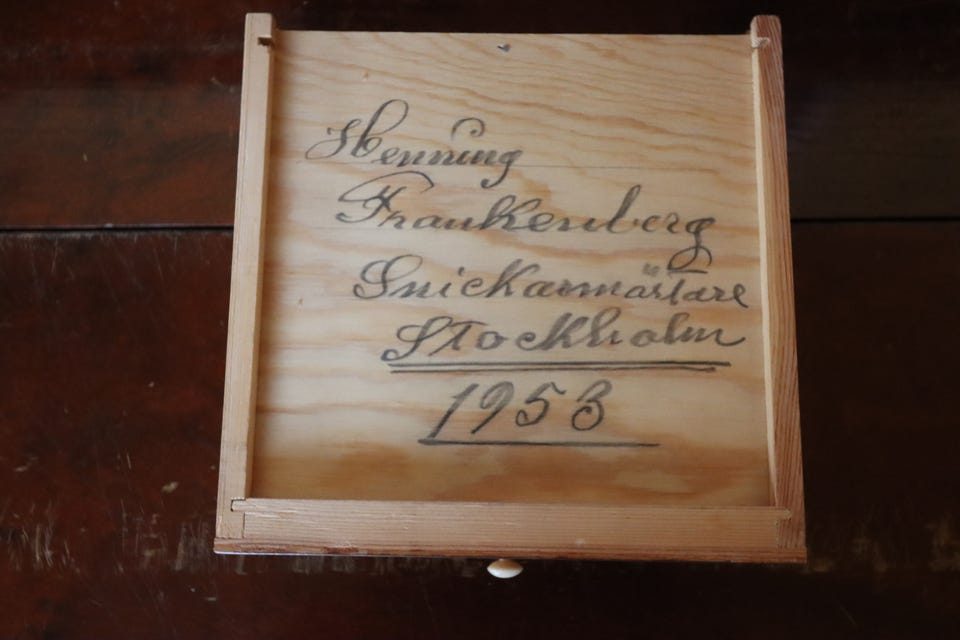 Henning
Frankenberg
Snickarmästare
Stockholm
1953